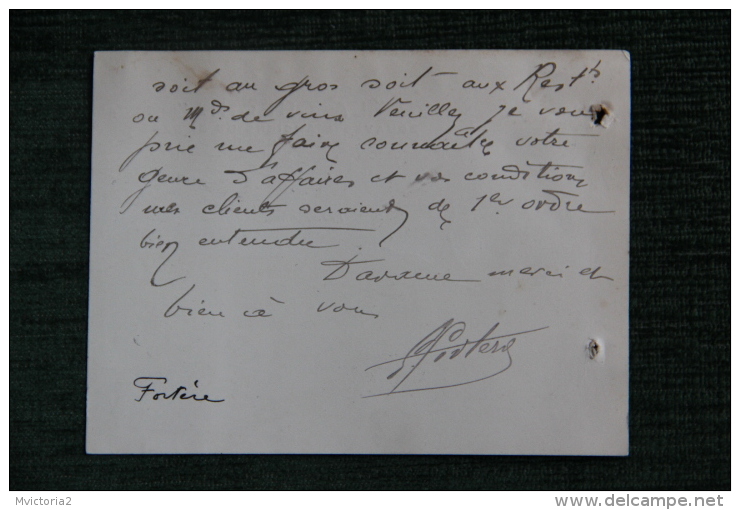 soit au gros soit aux Restts
ou Mds de vins Veuillez je vous
prie me faire connaître votre
genre d'affaires et vos conditions
mes clients seraient de 1er ordre
bien entendu.
D'avance merci et
bien à vous
Fortère
Fortère
Mvictoria2
www.delcampe.net